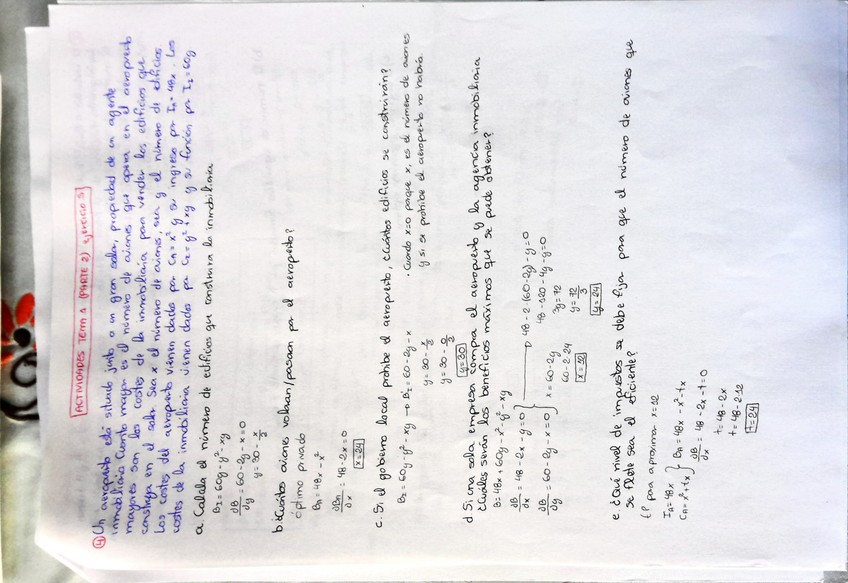 ACTIVIDADES TEMA 1 (PARTE 2) EJERCICIO 5
④ Un aeropuerto está situado junto a un gran solar, propiedad de un agente
inmobiliario. Cuanto mayor es el número de aviones que opera en el aeropuerto
mayores son los costes de la inmobiliaria para vender los edificios que
construya en el solar. Sea x el número de aviones, sea y el número de edificios.
Los costes del aeropuerto vienen dados por CA = x² y su ingreso por IA = 48x. Los
costes de la inmobiliaria vienen dados por CI = y² + xy y su función por II = 60y
a. Calcula el número de edificios que construirá la inmobiliaria
BI = 60y - y² - xy
∂B/∂y = 60 - 2y - x = 0
y = 30 - x/2
b. ¿Cuántos aviones volarían/pasarán por el aeropuerto?
óptimo privado
BA = 48x - x²
∂BA/∂x = 48 - 2x = 0
x = 24
c. Si el gobierno local prohíbe el aeropuerto, ¿cuántos edificios se construirán?
BI = 60y - y² - xy → BI = 60 - 2y - x
· Cuando x=0 porque x, es el número de aviones
y si se prohíbe el aeropuerto no habrá.
y = 30 - x/2
y = 30 - 0/2
y = 30
d. Si una sola empresa compra el aeropuerto y la agencia inmobiliaria
¿Cuáles serán los beneficios máximos que se puede obtener?
B = 48x + 60y - x² - y² - xy
∂B/∂x = 48 - 2x - y = 0 } → 48 - 2·(60 - 2y) - y = 0
48 - 120 - 4y - y = 0
∂B/∂y = 60 - 2y - x = 0 } x = 60 - 2y
3y = 72
60 - 2·24
y = 72/3
x = 12
y = 24
e. ¿Qué nivel de impuestos se debe fijar para que el número de aviones que
se flete sea el eficiente?
para x = 12
IA = 48x } BA = 48x - x² - tx
CA = x² + tx
∂B/∂x = 48 - 2x - t = 0
t = 48 - 2x
t = 48 - 2·12
t = 24